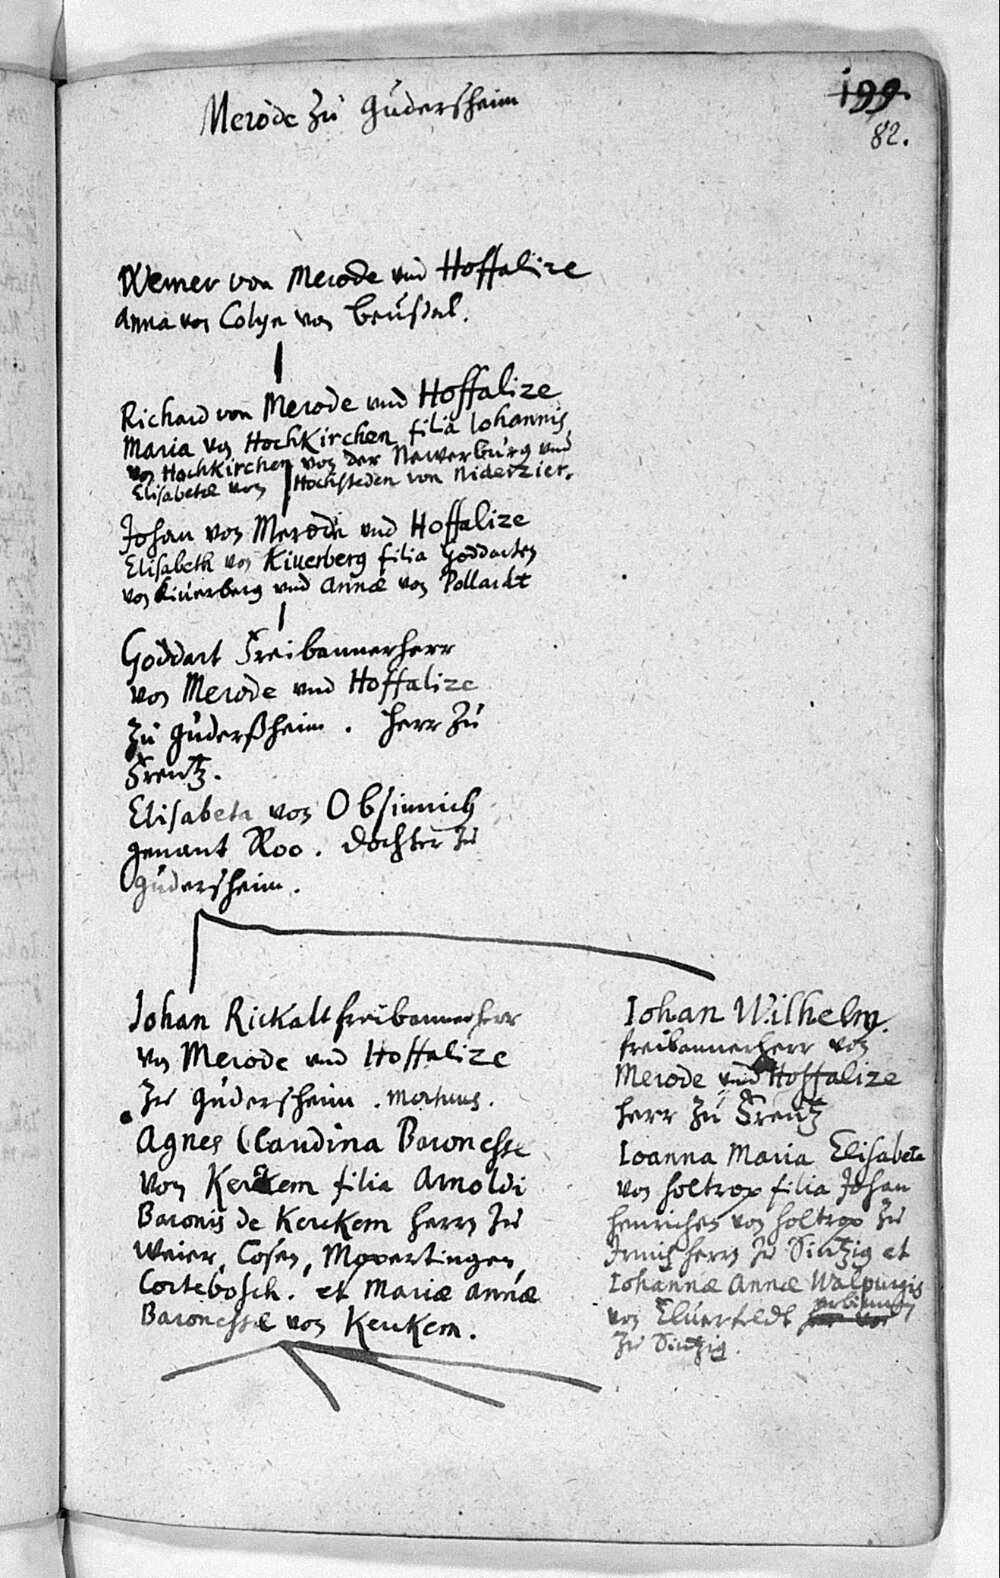 Merode zu Gudersheim
199.
82.
Werner von Merode vnd Hoffalize
Anna von Colyn von Beusdal.
Richard von Merode vnd Hoffalize
Maria von Hochkirchen filia Iohannis
von Hochkirchen von der Newerburg vnd
Elisabetæ von Hochsteden von Niderzier.
Johan von Merode vnd Hoffalize
Elisabeth von Kiuerberg filia Goddarten
von Kiuerberg vnd Annæ von Pollardt
Goddart Freibannerherr
von Merode vnd Hoffalize
zu Guderßheim . herr zu
Frentz.
Elisabeta von Obsinnich
genant Roo . dochter zu
Gudersheim .
Johan Rickalt freibannerherr
von Merode vnd Hoffalize
zu Gudersheim . mortuus .
Agnes Claudina Baronesse
von Kerckem filia Arnoldi
Baronis de Kerckem herrn zu
Weier, Cosen, Mopertingen,
Cortebosch . et Mariæ Annæ
Baronessæ von Kerckem .
Iohan Wilhelm.
freibannerherr von
Merode vnd Hoffalize
herr zu Frentz
Ioanna Maria Elisabeta
von holtrop filia Johan
henrichen von holtrop zu
Irnich herrn zu Sintzig et
Iohannæ Annæ Walpurgis
von Eluerfeldt erbinnen
zu Sintzig .